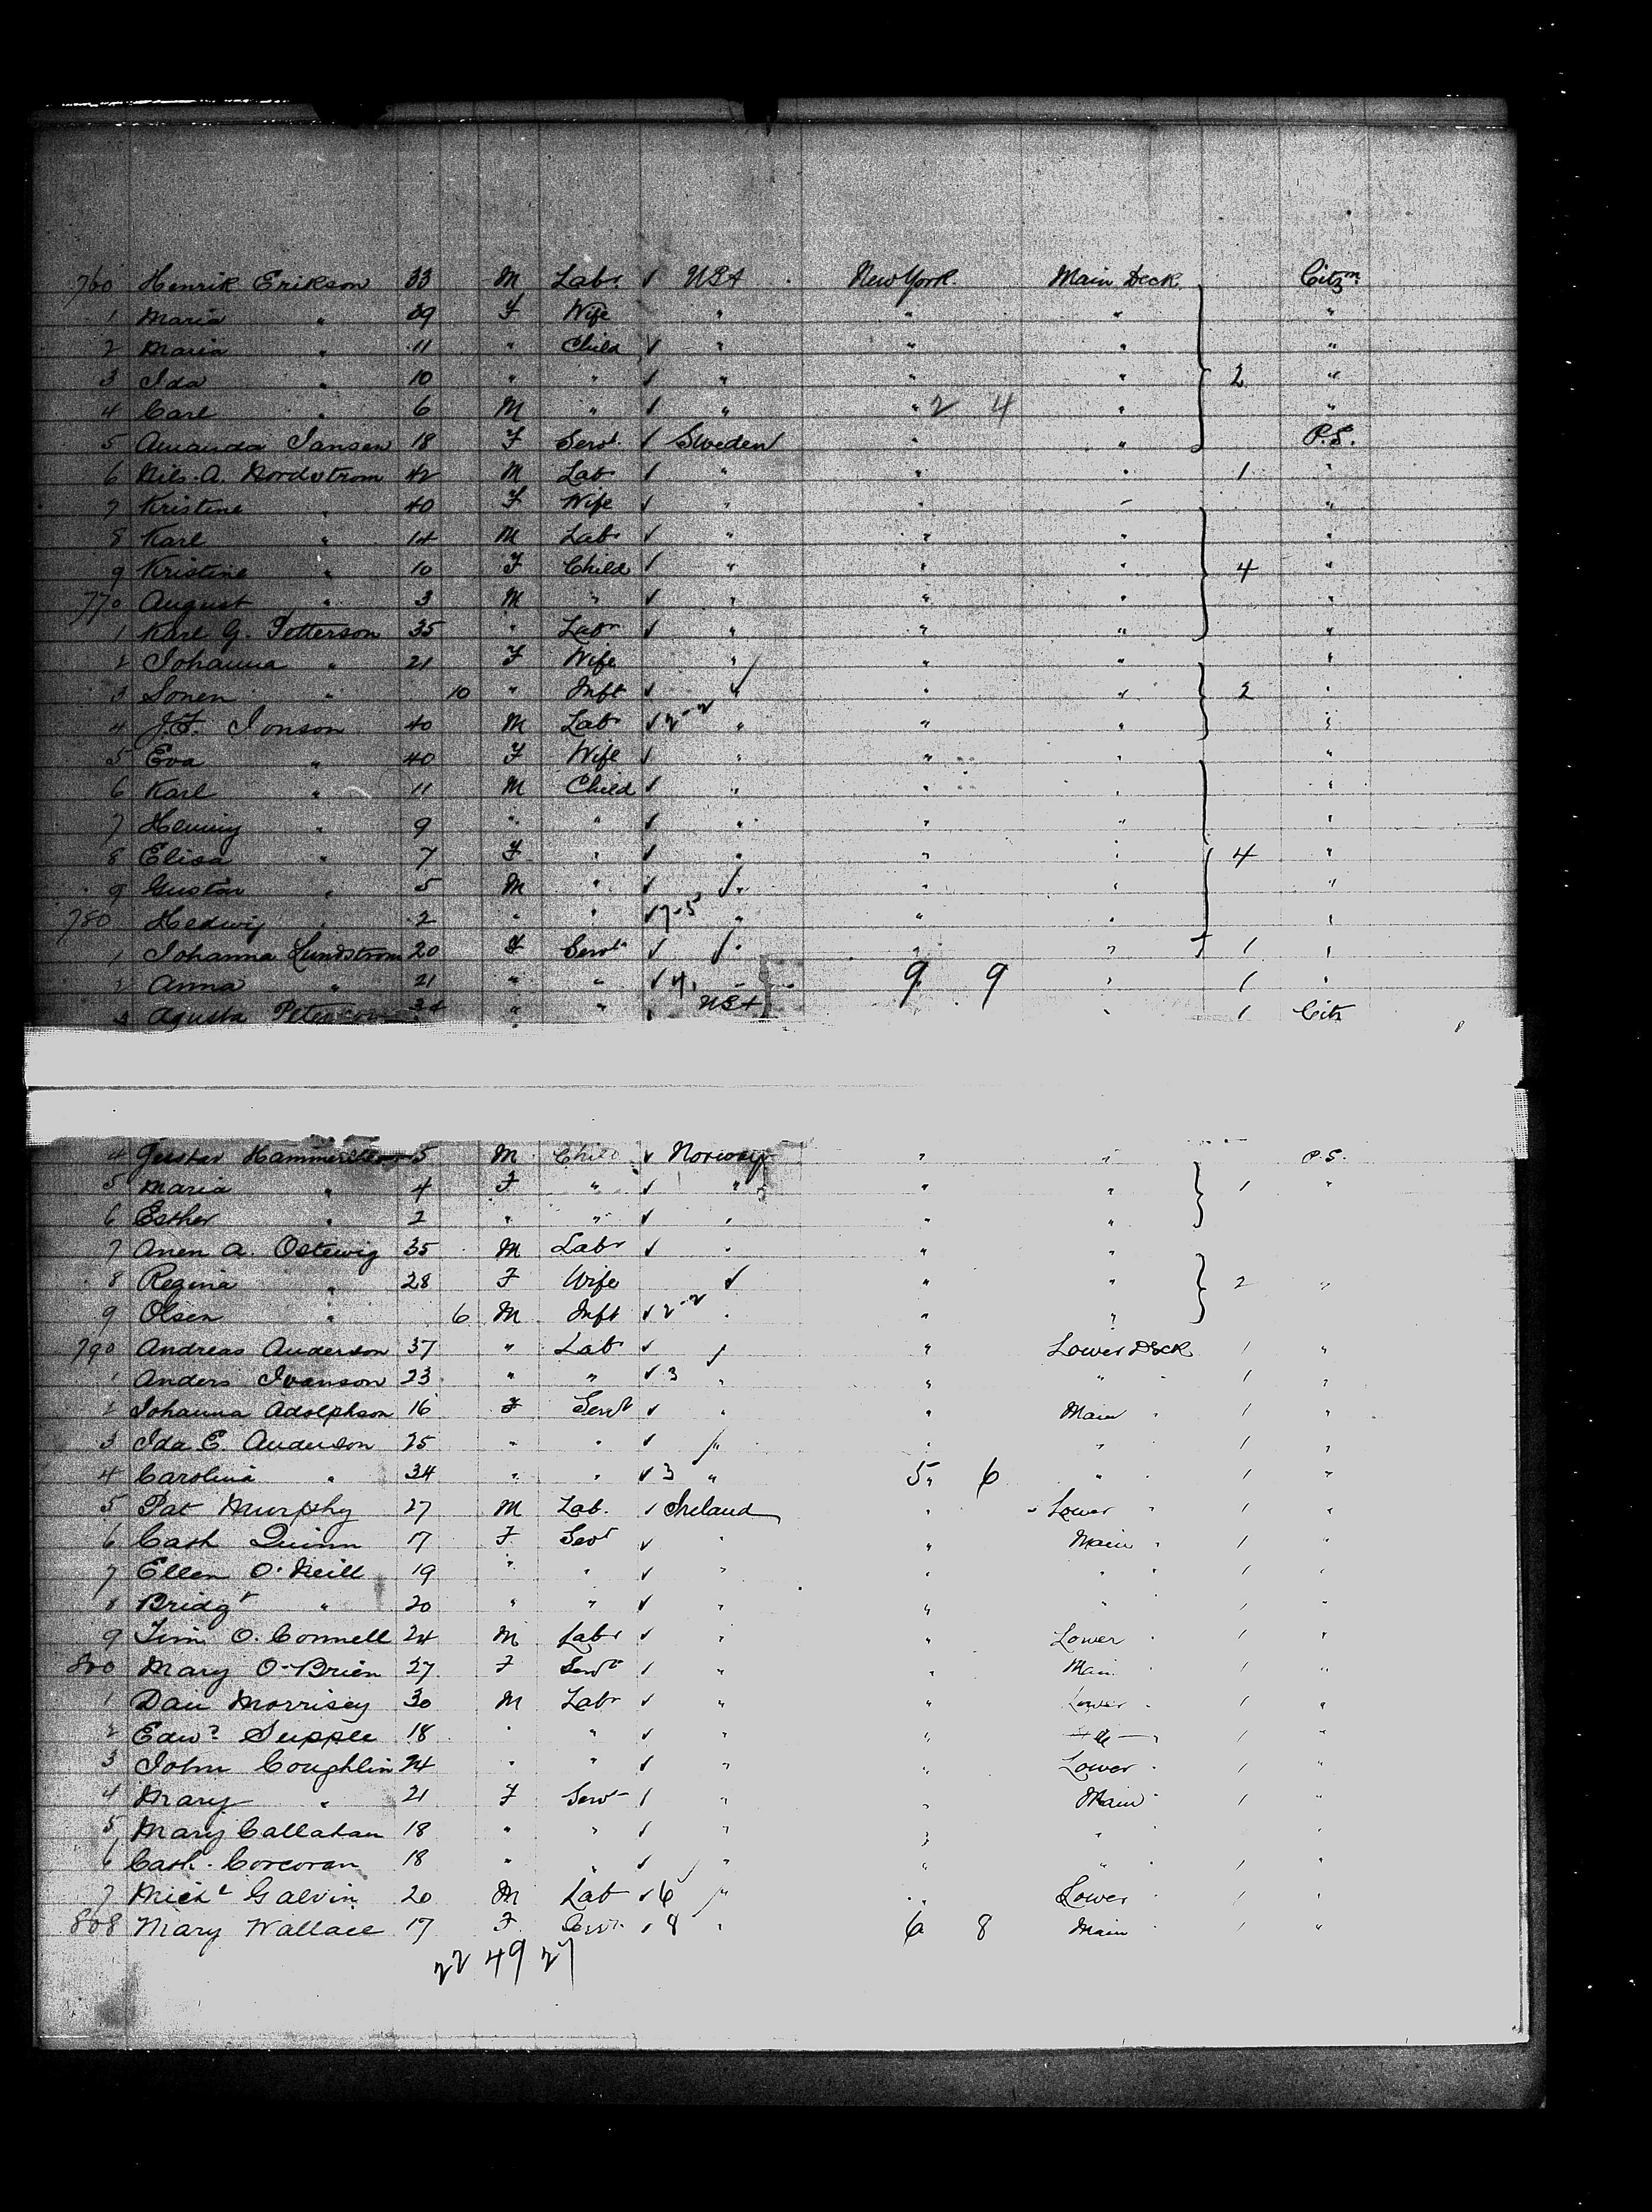 760 Henrik Erikson 33 M Labr ✓ USA New York. Main Deck Citzn
1 Maria " 39 F Wife " " " "
2 Maria " 11 " Child ✓ " " " "
3 Ida " 10 " " ✓ " " " 2 "
4 Carl " 6 M " ✓ " " 2 4 " "
5 Amanda Jansen 18 F Servt ✓ Sweden " " P.S.
6 Nils. A. Nordstrom 42 M Labr ✓ " " " 1 "
7 Kristine " 40 F Wife ✓ " " " "
8 Karl " 14 M Labr ✓ " " " "
9 Kristine " 10 F Child ✓ " " " 4 "
770 August " 3 M " ✓ " " " "
1 Karl G. Petterson 35 " Labr ✓ " " " "
2 Johanna " 21 F Wife " " " "
3 Sonen " 10 " Inft ✓ " " " 2 "
4 J.F. Jonson 40 M Labr ✓ 2-2 " " " "
5 Eva " 40 F Wife ✓ " " " "
6 Karl " 11 M Child ✓ " " " "
7 Henny " 9 " " ✓ " " " "
8 Elisa " 7 F " ✓ " " " 4 "
9 Gustav " 5 M " ✓ " " " "
780 Hedwig " 2 " " ✓ 7-5 " " " "
1 Johanna Lundstrom 20 F Servt ✓ " " " 1 "
2 Anna " 21 " " ✓ 4 " 9 9 " 1 "
3 Agusta Peterson 34 " " USA " 1 Citz
4 Gustav 5 M Child ✓ Norway " " P.S.
5 Maria " 4 F " ✓ " " " 1 "
6 Esther " 2 " " ✓ " " "
7 Anen A. Ostewig 35 M Labr ✓ " " "
8 Regina " 28 F Wife ✓ " " 2 "
9 Olsen " 6 M Inft ✓ 2-2 " " "
790 Andreas Anderson 37 " Labr ✓ " " Lower Deck 1 "
1 Anders Ivanson 23 " " ✓ 3 " " " 1 "
2 Johanna Adolphson 16 F Servt ✓ " " Main " 1 "
3 Ida E. Anderson 25 " " ✓ " " " 1 "
4 Carolina " 34 " " ✓ 3 " 5 " 6 " 1 "
5 Pat Murphy 27 M Lab. ✓ Ireland " Lower " 1 "
6 Cath Quinn 17 F Servt ✓ " " Main " 1 "
7 Ellen O'Neill 19 " " ✓ " " " " 1 "
8 Bridgt " 20 " " ✓ " " " 1 "
9 Tim O'Connell 24 M Labr ✓ " " Lower " 1 "
800 Mary O'Brien 27 F Servt ✓ " " Main 1 "
1 Dan Morrisey 30 M Labr ✓ " " Lower " 1 "
2 Edwd Supple 18 " " ✓ " " " 1 "
3 John Coughlin 24 " " ✓ " " Lower " 1 "
4 Mary " 21 F Servt ✓ " " Main " 1 "
5 Mary Callahan 18 " " ✓ " " " "
6 Cath. Corcoran 18 " " ✓ " " " " 1 "
7 Michl Galvin 20 M Lab ✓ 6 " " Lower " 1 "
808 Mary Wallace 17 F Servt ✓ 8 " 6 8 Main " 1 "
22 49 27